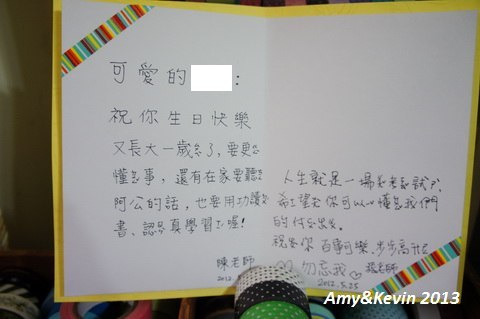 可愛的 :
祝你生日快樂
又長大一歲了,要更
懂事,還有在家要聽
阿公的話,也要用功讀
書、認真學習喔!
陳老師
2012.5.25
人生就是一場考試,
希望你可以懂我們
的付出。
祝你 百事可樂、步步高升
勿忘我 張老師
2012.5.25
Amy&Kevin 2013